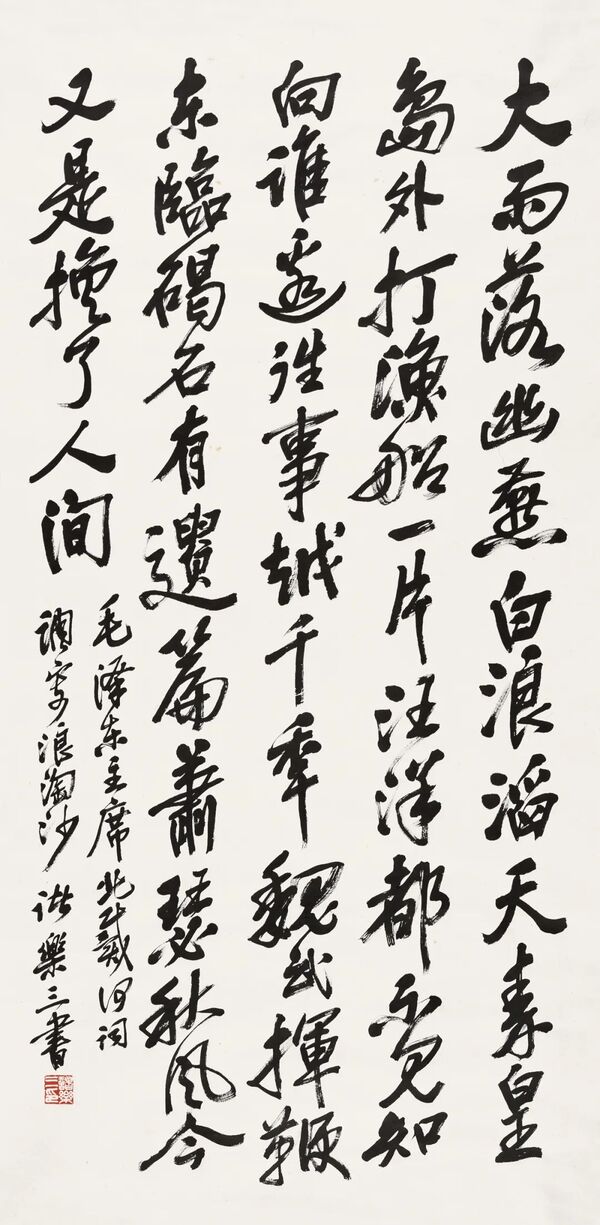 大雨落幽燕白浪滔天秦皇
島外打漁船一片汪洋都不見知
向誰邊往事越千年魏武揮鞭
東臨碣石有遺篇蕭瑟秋風今
又是換了人間
毛澤東主席北戴河詞
調寄浪淘沙 諸樂三書